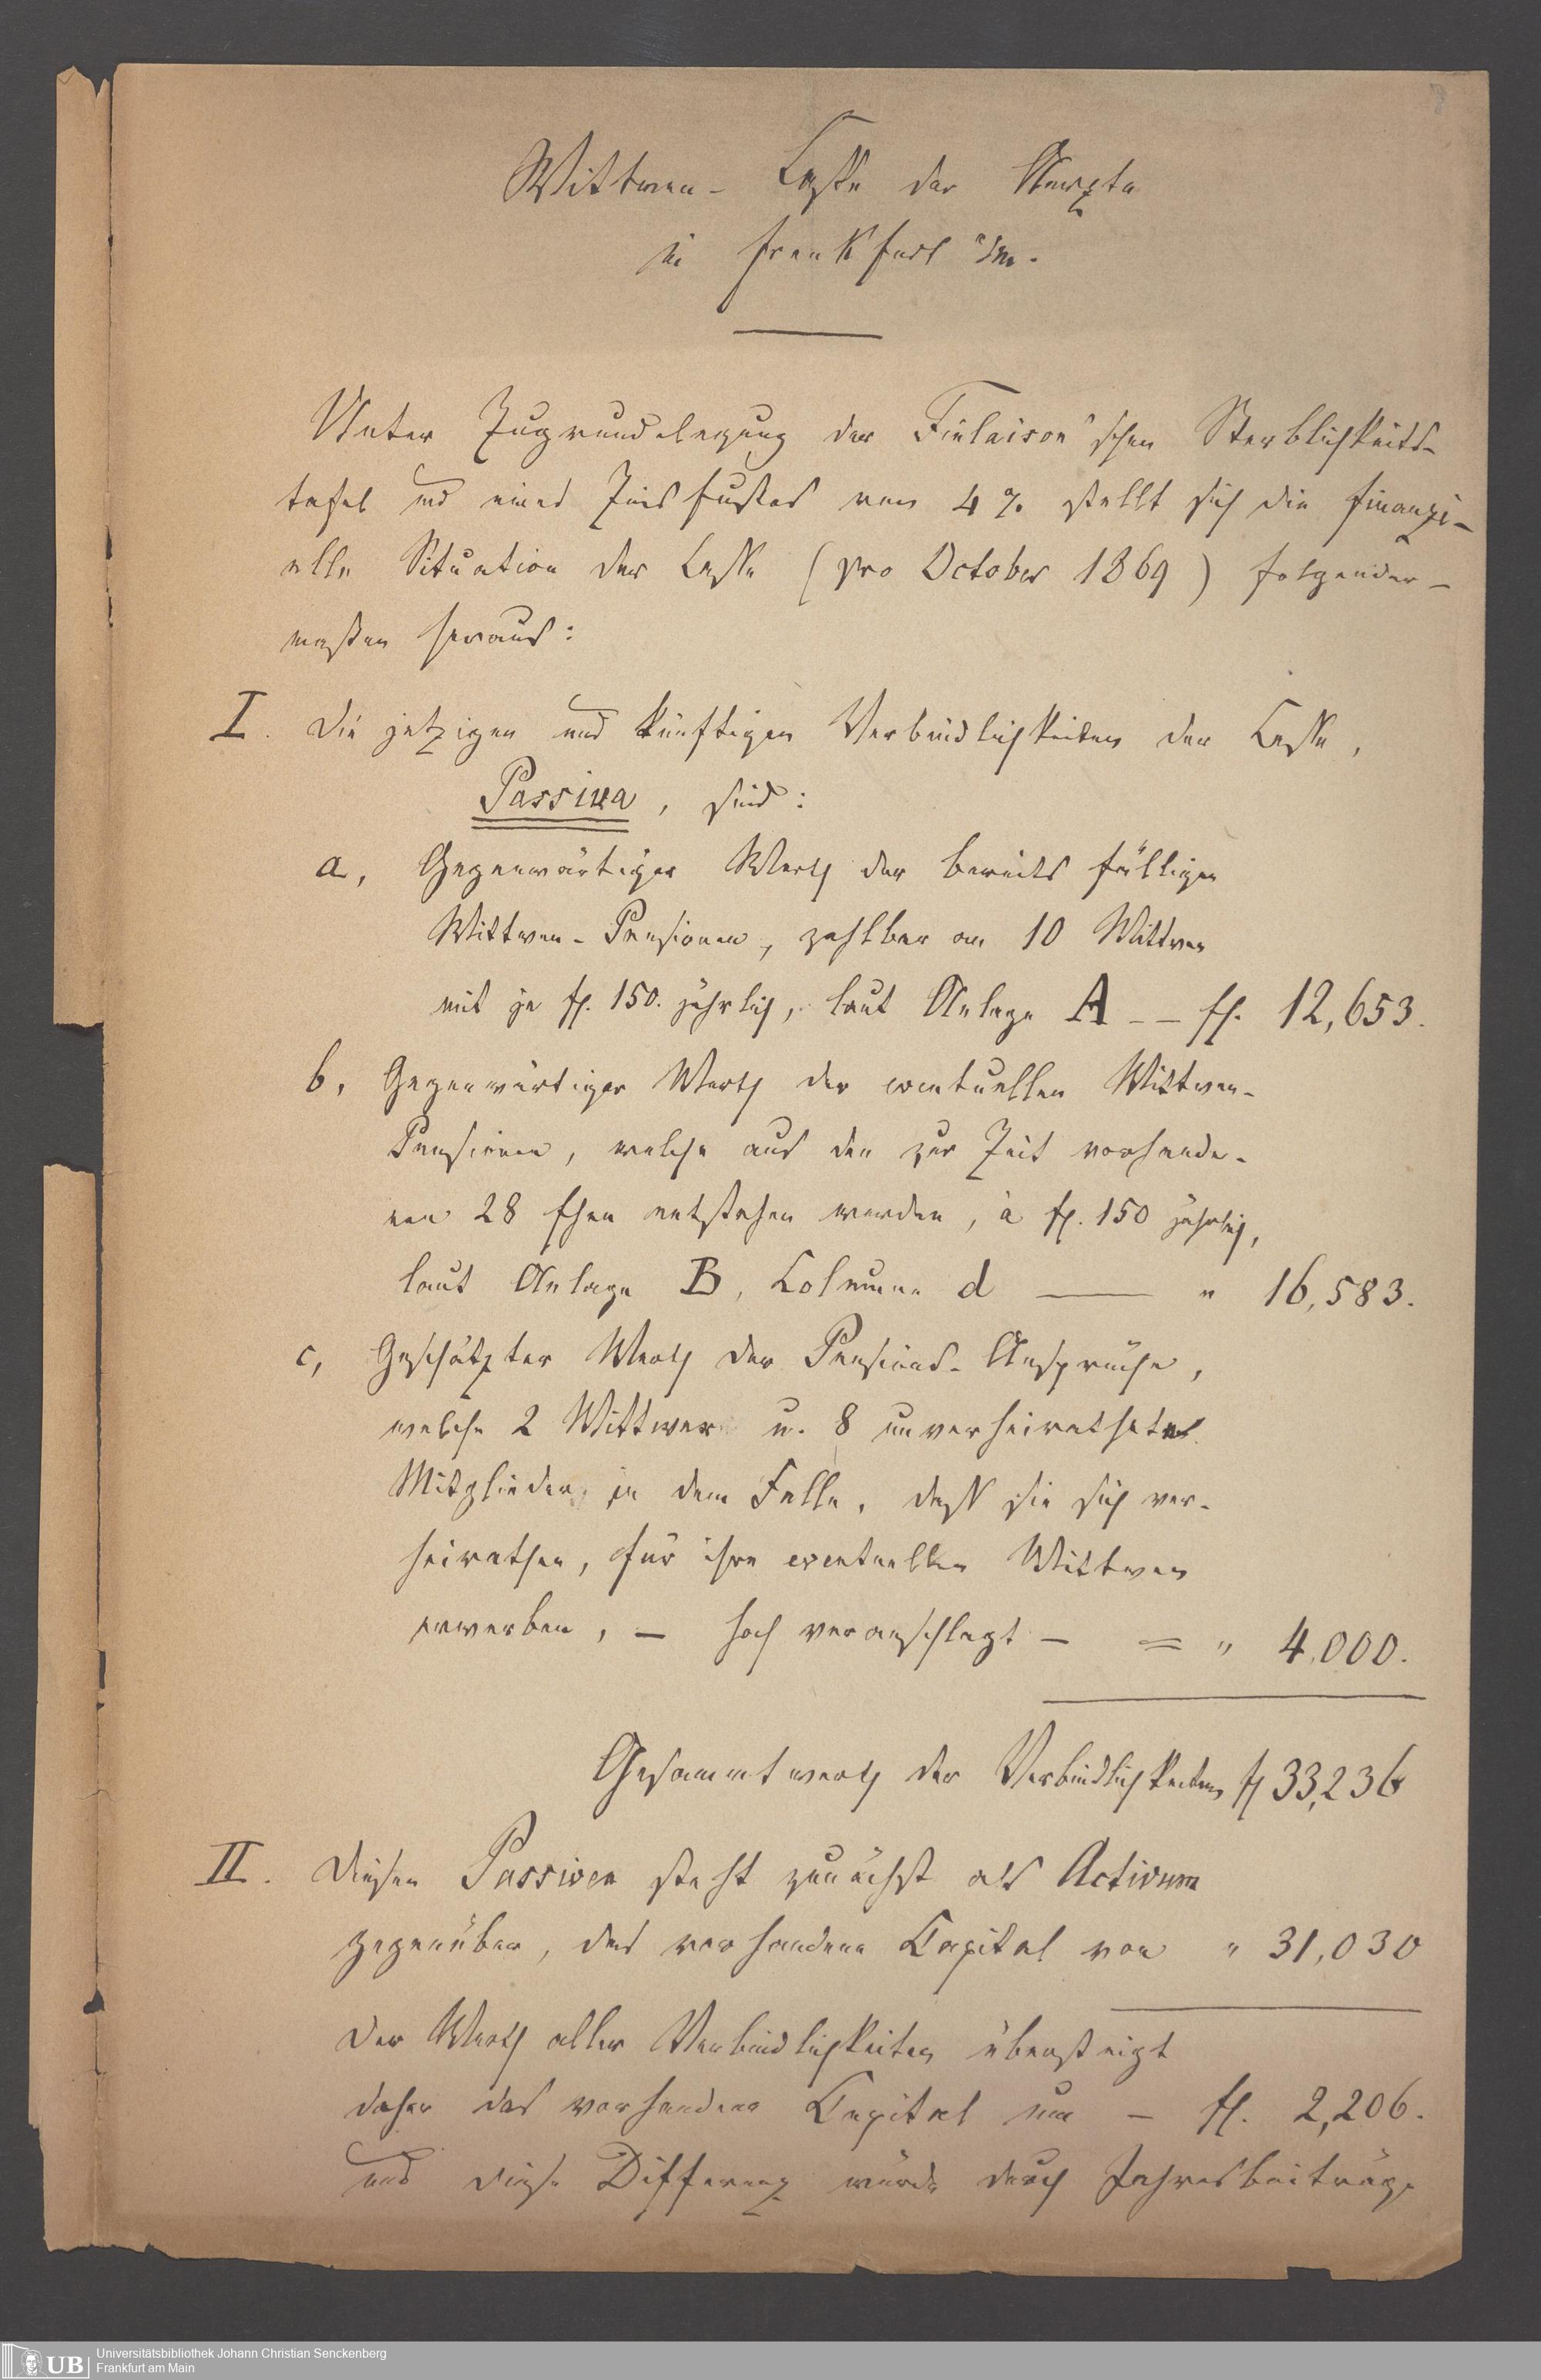 Wittwen-Casse der Aerzte
in Frankfurt a/m.
Unter Zugrundelegung der Finlaison'schen Sterblichkeits-
tafel und eines Zinsfußes von 4% stellt sich die finanzi-
elle Situation der Casse (pro October 1869) folgender-
maßen heraus:
I. Die jetzigen und künftigen Verbindlichkeiten der Casse,
Passiva, sind:
a, Gegenwärtiger Werth der bereits fälligen
Wittwen-Pensionen, zahlbar an 10 Wittwen
mit je fl. 150. jährlich, laut Anlage A -- fl. 12,653.
b, Gegenwärtiger Werth der eventuellen Wittwen-
Pensionen, welche aus den zur Zeit vorhande-
nen 28 Ehen entstehen werden, à fl. 150 jährlich,
laut Anlage B, Columne d — " 16,583.
c, Geschätzter Werth der Pensions-Ansprüche,
welche 2 Wittwer u. 8 unverheirathete
Mitglieder, in dem Falle, daß sie sich ver-
heirathen, für ihre eventuellen Wittwen
erwerben, — hoch veranschlagt — = " 4,000.
Gesammtwerth der Verbindlichkeiten fl 33,236
II. Diesen Passiven steht zunächst als Activum
gegenüber, das vorhandene Capital von " 31,030
Der Werth aller Verbindlichkeiten übersteigt
daher das vorhandene Capital um — fl. 2,206.
und diese Differenz würde durch Jahresbeiträge
UB
Universitätsbibliothek Johann Christian Senckenberg
Frankfurt am Main